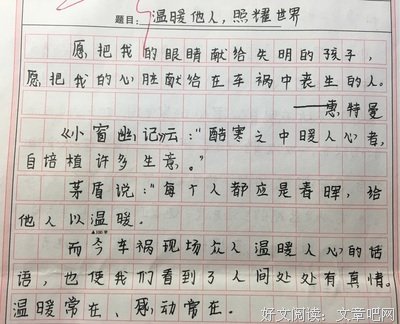 题目：温暖他人，照耀世界
愿把我的眼睛献给失明的孩子，
愿把我的心脏献给在车祸中丧生的人。
——惠特曼
《小窗幽记》云：“酷寒之中暖人心者，
自培植许多生意。”
茅盾说：“每个人都应是春晖，给
他人以温暖．
▲100字
而今车祸现场众人温暖人心的话
语，也使我们看到了人间处处有真情。
温暖常在、感动常在．
好文阅读：文章吧网